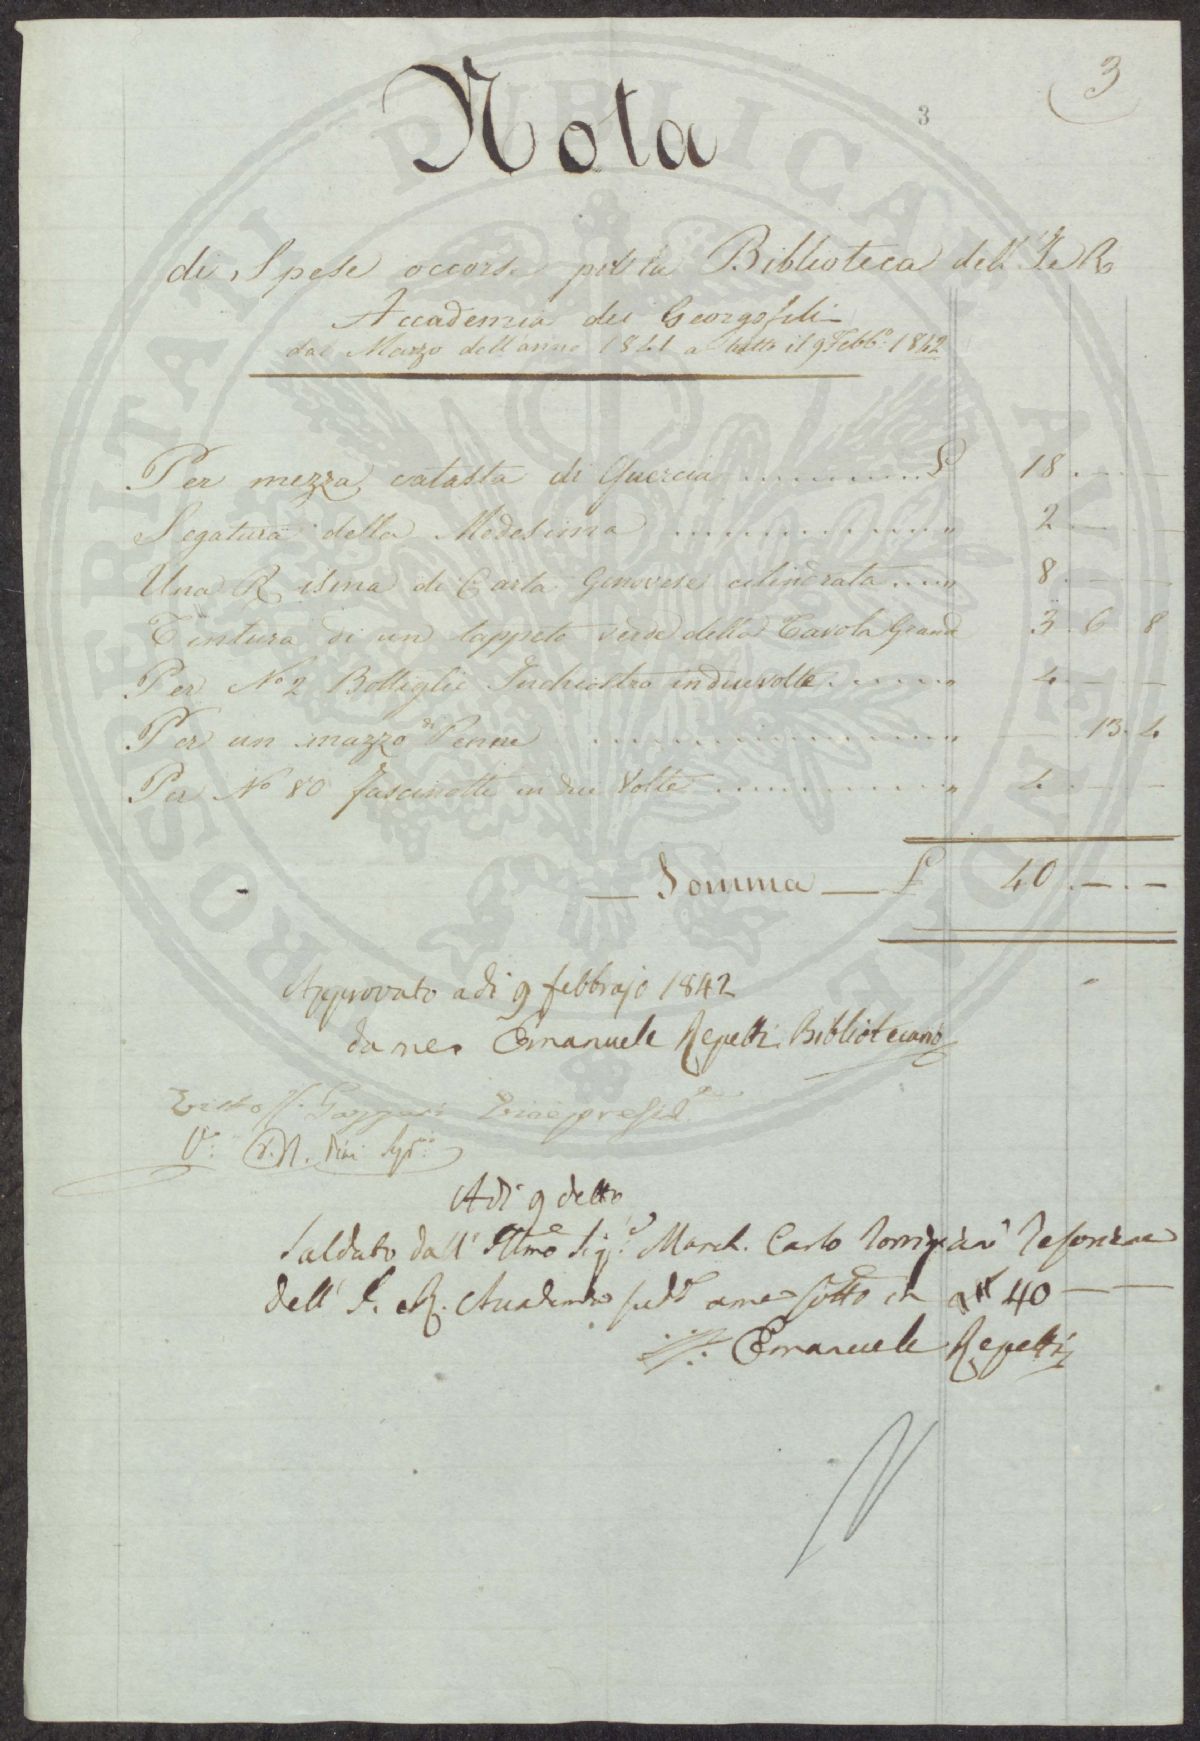 3
3
Nota
di Spese occorse per la Biblioteca dell' I e R
Accademia dei Georgofili
dal Marzo dell'anno 1841 a tutto il 9 Febb.o 1842
Per mezza catasta di Quercia ............ £ 18. — . —
Segatura della Medesima ............ „ 2 — —
Una Risma di Carta Genovese cilindrata .... „ 8. — —
Tintura di un tappeto verde della Tavola Grand 3. 6 8
Per No 2 Bottiglie Inchiostro in due volte ...... „ 4 — —
Per un mazzo di Penne ............ „ — 13. 4
Per No 80 fascinotti in due Volte ............ „ 4 — —
— Somma — £ 40. — . —
Approvato a dì 9 febbrajo 1842
da me. Emanuele Repetti Bibliotecario
Visto Gazzeri Vicepresid.te
V.
A dì 9 detto
Saldato dall' Illmo Sig.e March. Carlo Torrigiani Tesoriere
dell' I. R. Accademia sudd.a a me sotto in 40 — —
Emanuele Repetti
PROSPERITATI PUBLICAE AUGENDAE